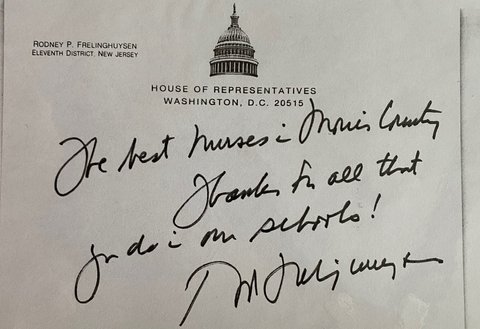 RODNEY P. FRELINGHUYSEN
ELEVENTH DISTRICT, NEW JERSEY
HOUSE OF REPRESENTATIVES
WASHINGTON, D.C. 20515
The best nurses in Morris County
Thanks for all that
you do in our schools!
Rod Frelinghuysen